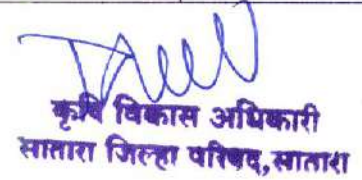 कृषि विकास अधिकारी
सातारा जिल्हा परिषद,सातारा